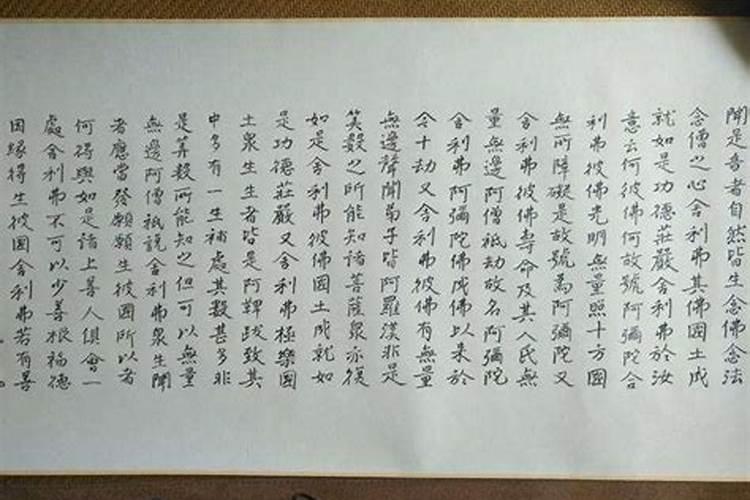 聞是音者自然皆生念佛念法
念僧之心舍利弗其佛國土成
就如是功德莊嚴舍利弗於汝
意云何彼佛何故號阿彌陀舍
利弗彼佛光明無量照十方國
無所障礙是故號為阿彌陀又
舍利弗彼佛壽命及其人民無
量無邊阿僧祇劫故名阿彌陀
舍利弗阿彌陀佛成佛以来於
今十劫又舍利弗彼佛有無量
無邊聲聞弟子皆阿羅漢非是
筭數之所能知諸菩薩衆亦復
如是舍利弗彼佛國土成就如
是功德莊嚴又舍利弗極樂國
土衆生生者皆是阿鞞跋致其
中多有一生補處其數甚多非
是筭數所能知之但可以無量
無邊阿僧祇說舍利弗衆生聞
者應當發願願生彼國所以者
何得與如是諸上善人俱會一
處舍利弗不可以少善根福德
因緣得生彼國舍利弗若有善